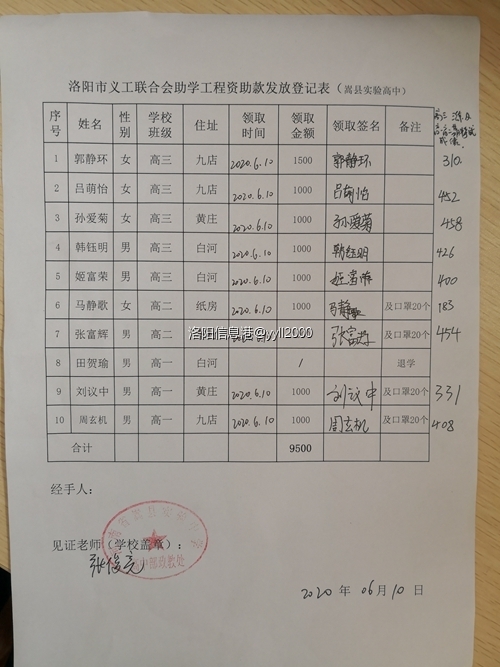 洛阳市义工联合会助学工程资助款发放登记表（嵩县实验高中）
序号 姓名 性别 学校班级 住址 领取时间 领取金额 领取签名 备注
1 郭静环 女 高三 九店 2020.6.10 1500 郭静环 310
2 吕萌怡 女 高三 九店 2020.6.10 1000 吕萌怡 452
3 孙爱菊 女 高三 黄庄 2020.6.10 1000 孙爱菊 458
4 韩钰明 男 高三 白河 2020.6.10 1000 韩钰明 426
5 姬富荣 男 高三 白河 2020.6.10 1000 姬富荣 400
6 马静歌 女 高二 纸房 2020.6.10 1000 马静歌 及口罩20个 183
7 张富辉 男 高二 2020.6.10 1000 张富辉 及口罩20个 454
洛阳信息港@yyll2000
8 田贺瑜 男 高一 白河 / 退学
9 刘议中 男 高一 黄庄 2020.6.10 1000 刘议中 及口罩20个 331
10 周玄机 男 高一 九店 2020.6.10 1000 周玄机 及口罩20个 408
合计 9500
经手人：
见证老师（学校盖章）：
张俊亮
2020 年 06月 10 日